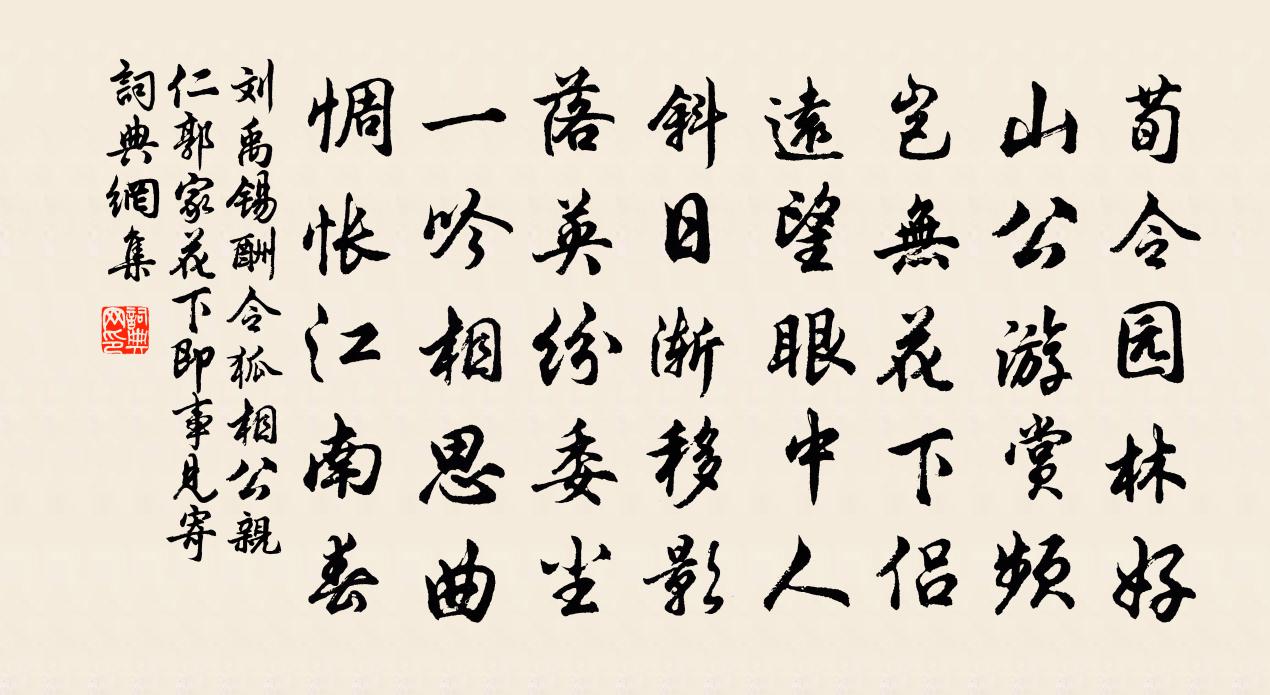 荀令园林好
山公游赏频
岂無花下侣
遠望眼中人
斜日渐移影
落英纷委尘
一吟相思曲
惆怅江南春
刘禹锡酬令狐相公親
仁郭家花下即事見寄
詞典網集
詞典网印